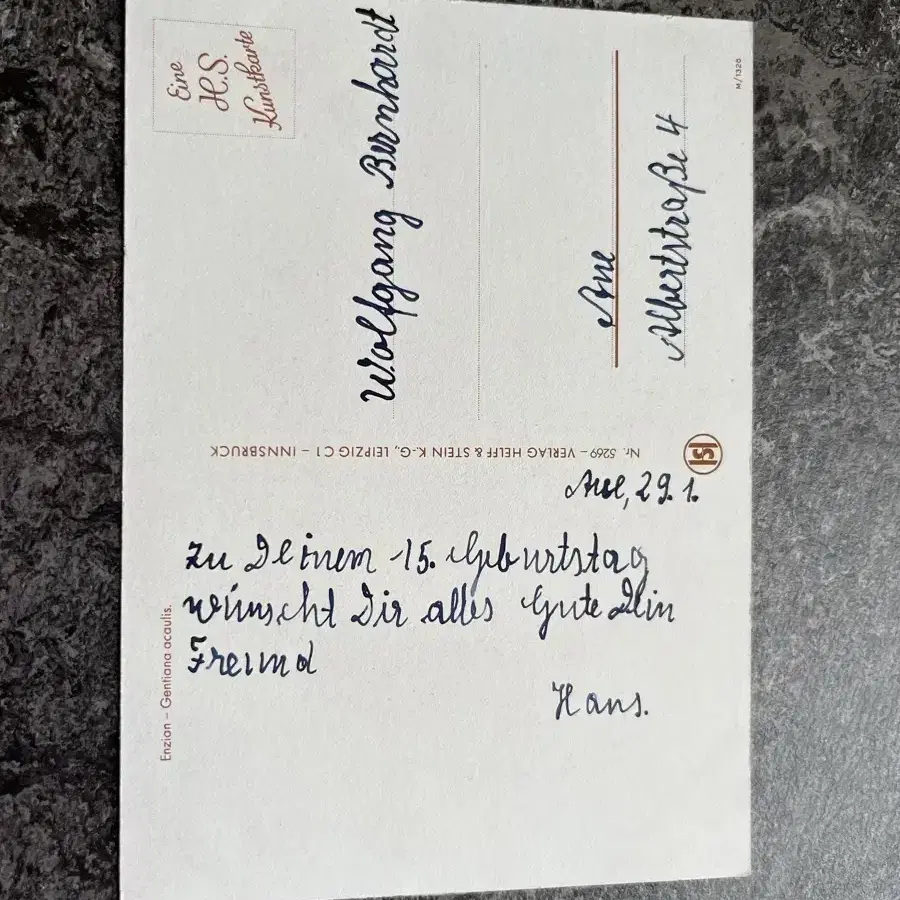 Aue, 29. 1.
Zu Deinem 15. Geburtstag
wünscht Dir alles Gute Dein
Freund
Hans.
Enzian – Gentiana acaulis.
Nr. 5269 – VERLAG HELFF & STEIN K.-G., LEIPZIG C1 – INNSBRUCK
HSI
Eine
H.S.
Kunstkarte
Wolfgang Bernhardt
Aue
Albertstraße 4
M/1326